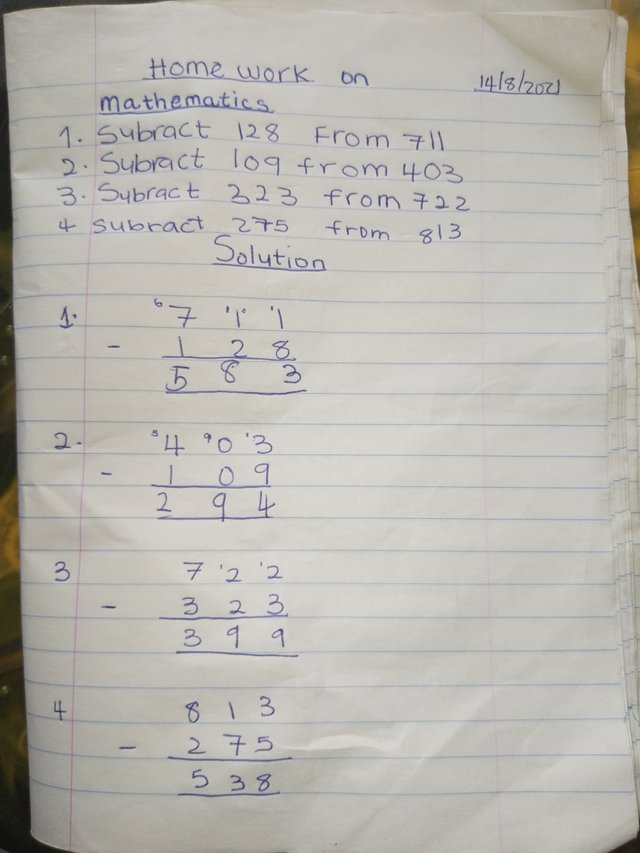 Home work on 14/8/2021
mathematics
1. Subract 128 From 711
2. Subract 109 from 403
3. Subract 323 from 722
4 subract 275 from 813
Solution
1. 6 7 1 1 0 1 1
- 1 2 8
5 8 3
2. 3 4 9 0 1 3
- 1 0 9
2 9 4
3 7 1 2 1 2
- 3 2 3
3 9 9
4 8 1 3
- 2 7 5
5 3 8